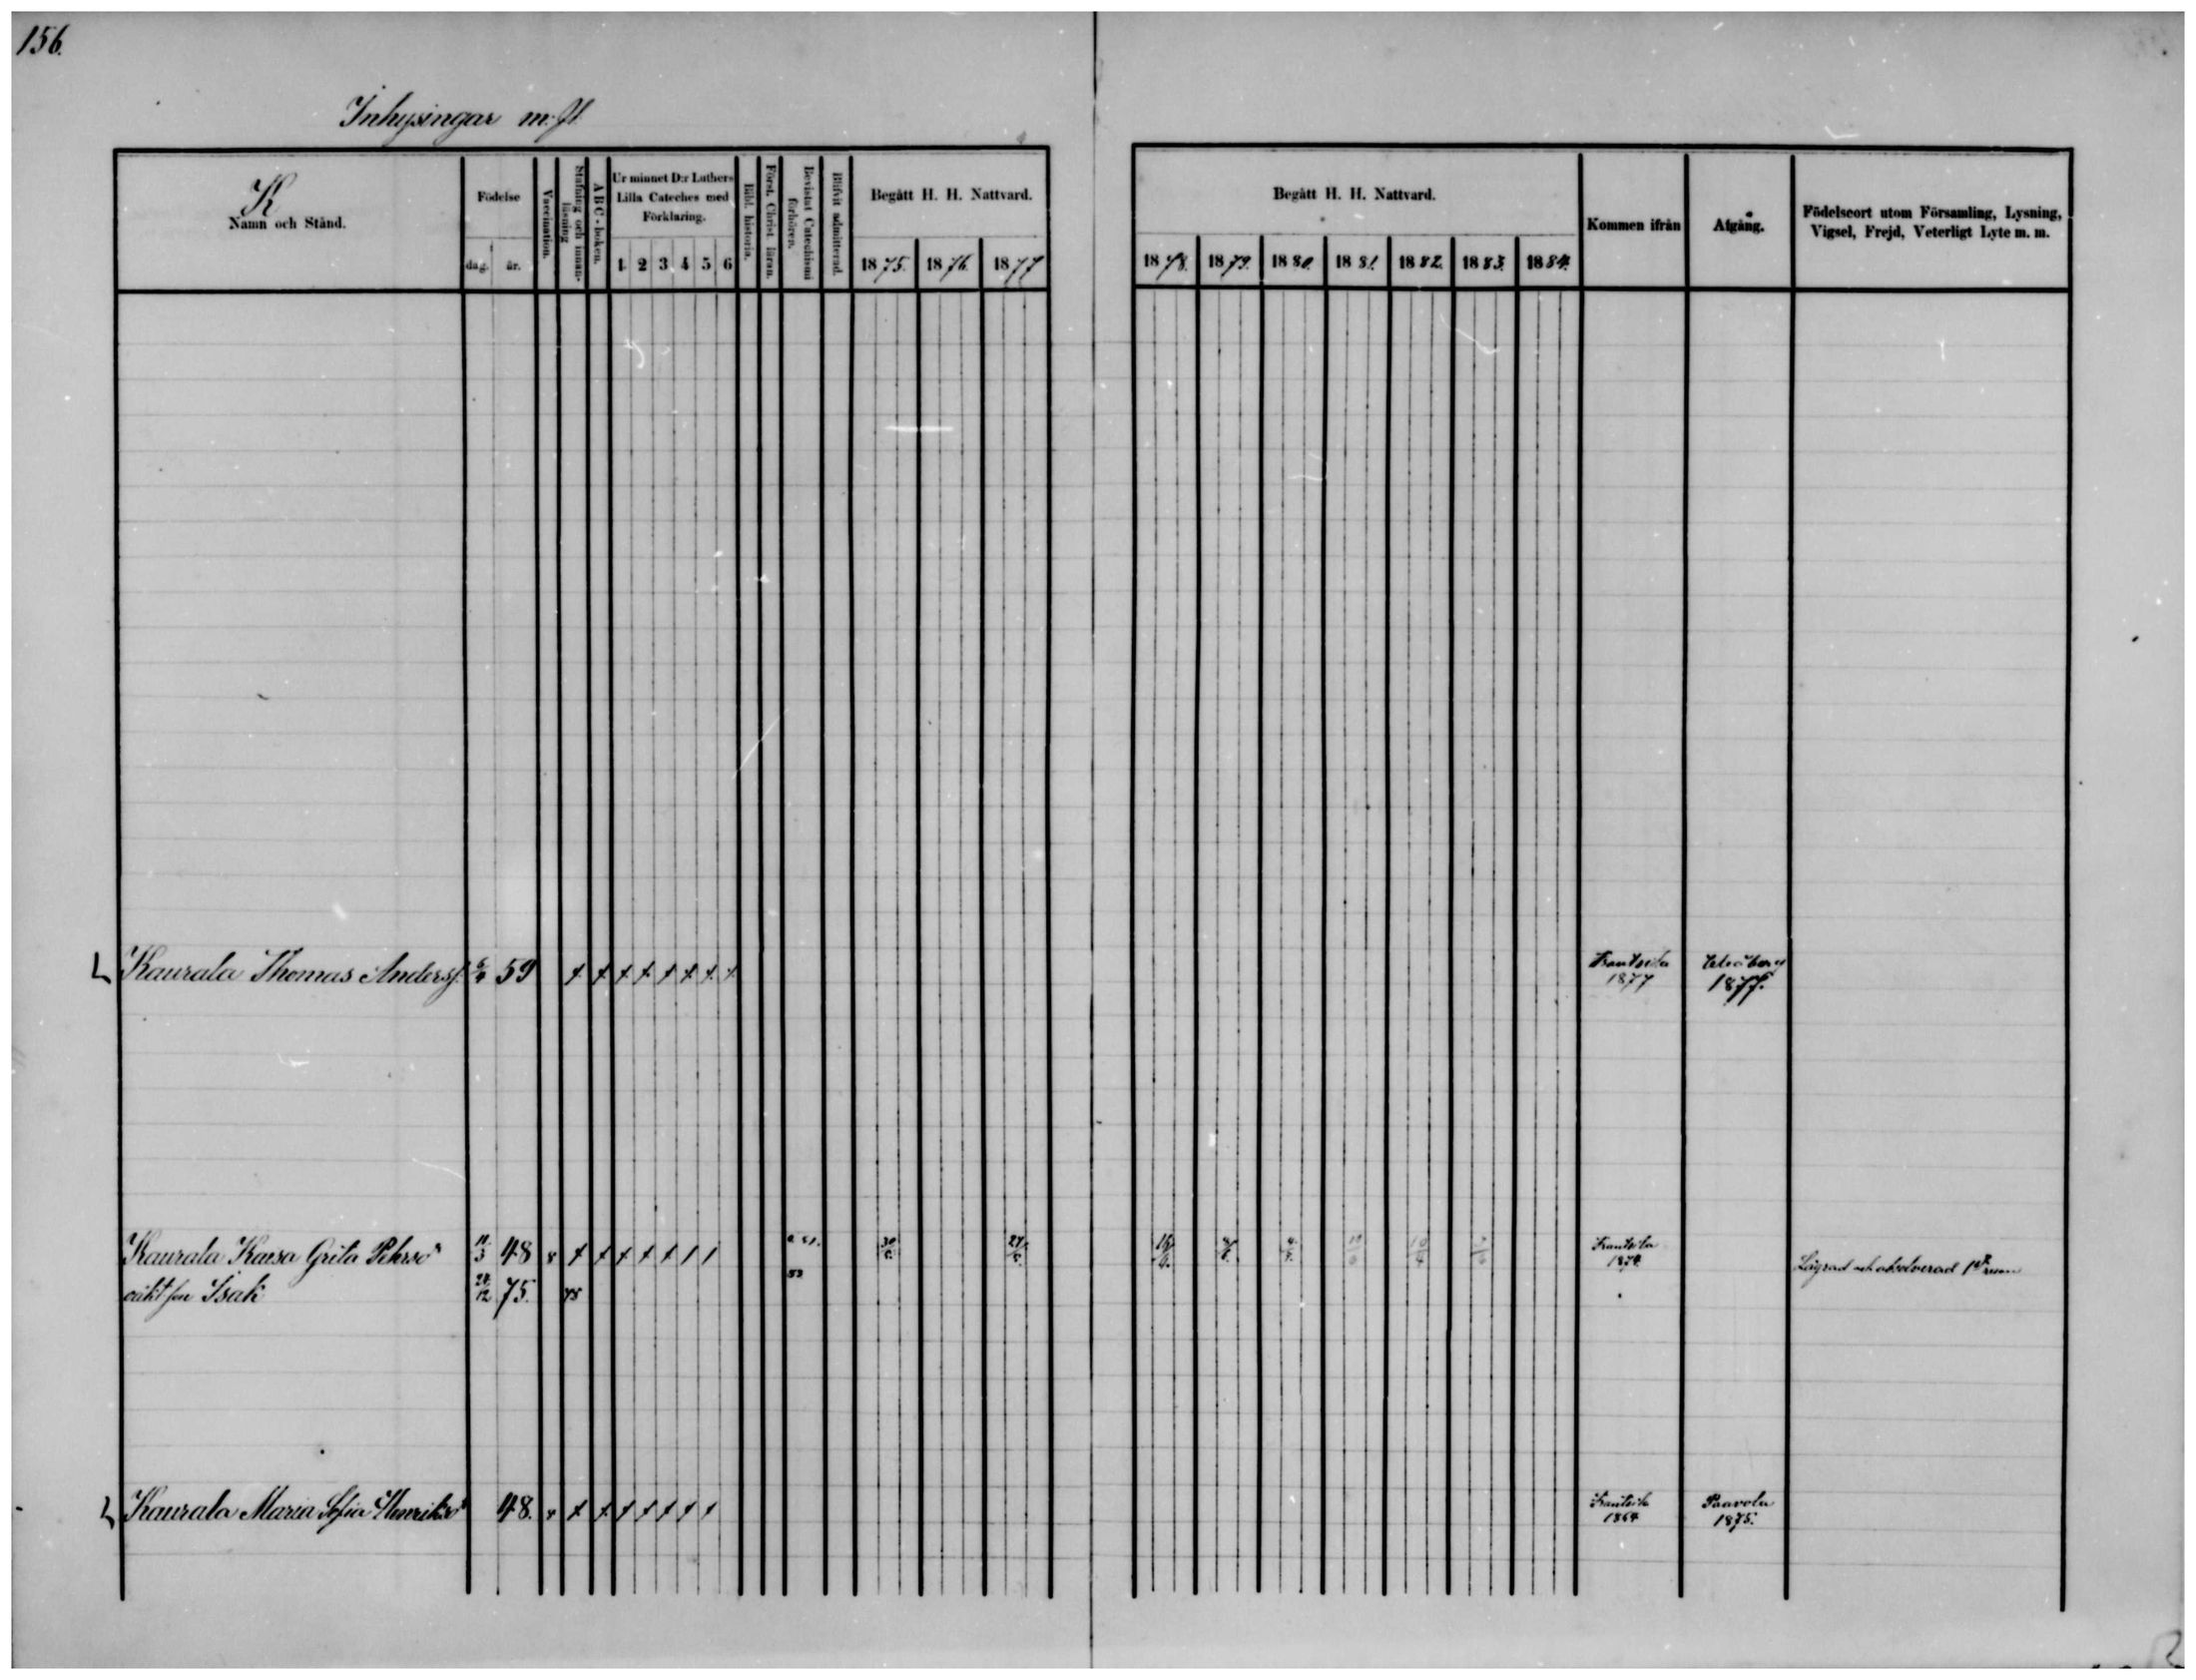 156.
Inhysingar m. fl.
K
Namn och Stånd.
Födelse
dag. år.
Vaccination.
Stafning och innanläsning
ABC-boken.
Ur minnet D:r Luthers
Lilla Cateches med
Förklaring.
1 2 3 4 5 6
Bibl. historia.
Först. Christ läran.
Bevistat Catechismi förhören.
Blifvit admitterad.
Begått H. H. Nattvard.
1875. 1876. 1877
Begått H. H. Nattvard.
1878. 1879. 1880. 1881. 1882. 1883. 1884.
Kommen ifrån
Afgång.
Födelseort utom Församling, Lysning,
Vigsel, Frejd, Veterligt Lyte m. m.
Kaurala Thomas Anderss. 59 Frantsila Uleåborg
1877 1877.
Kaurala Kaisa Greta Pehrsdr 11/3 48 Frantsila
1874. Lägrad och absolverad
oäkt son Isak 28/12 75. 78
Kaurala Maria Sofia Henriksdr 48. Frantsila Paavola
1864 1875.